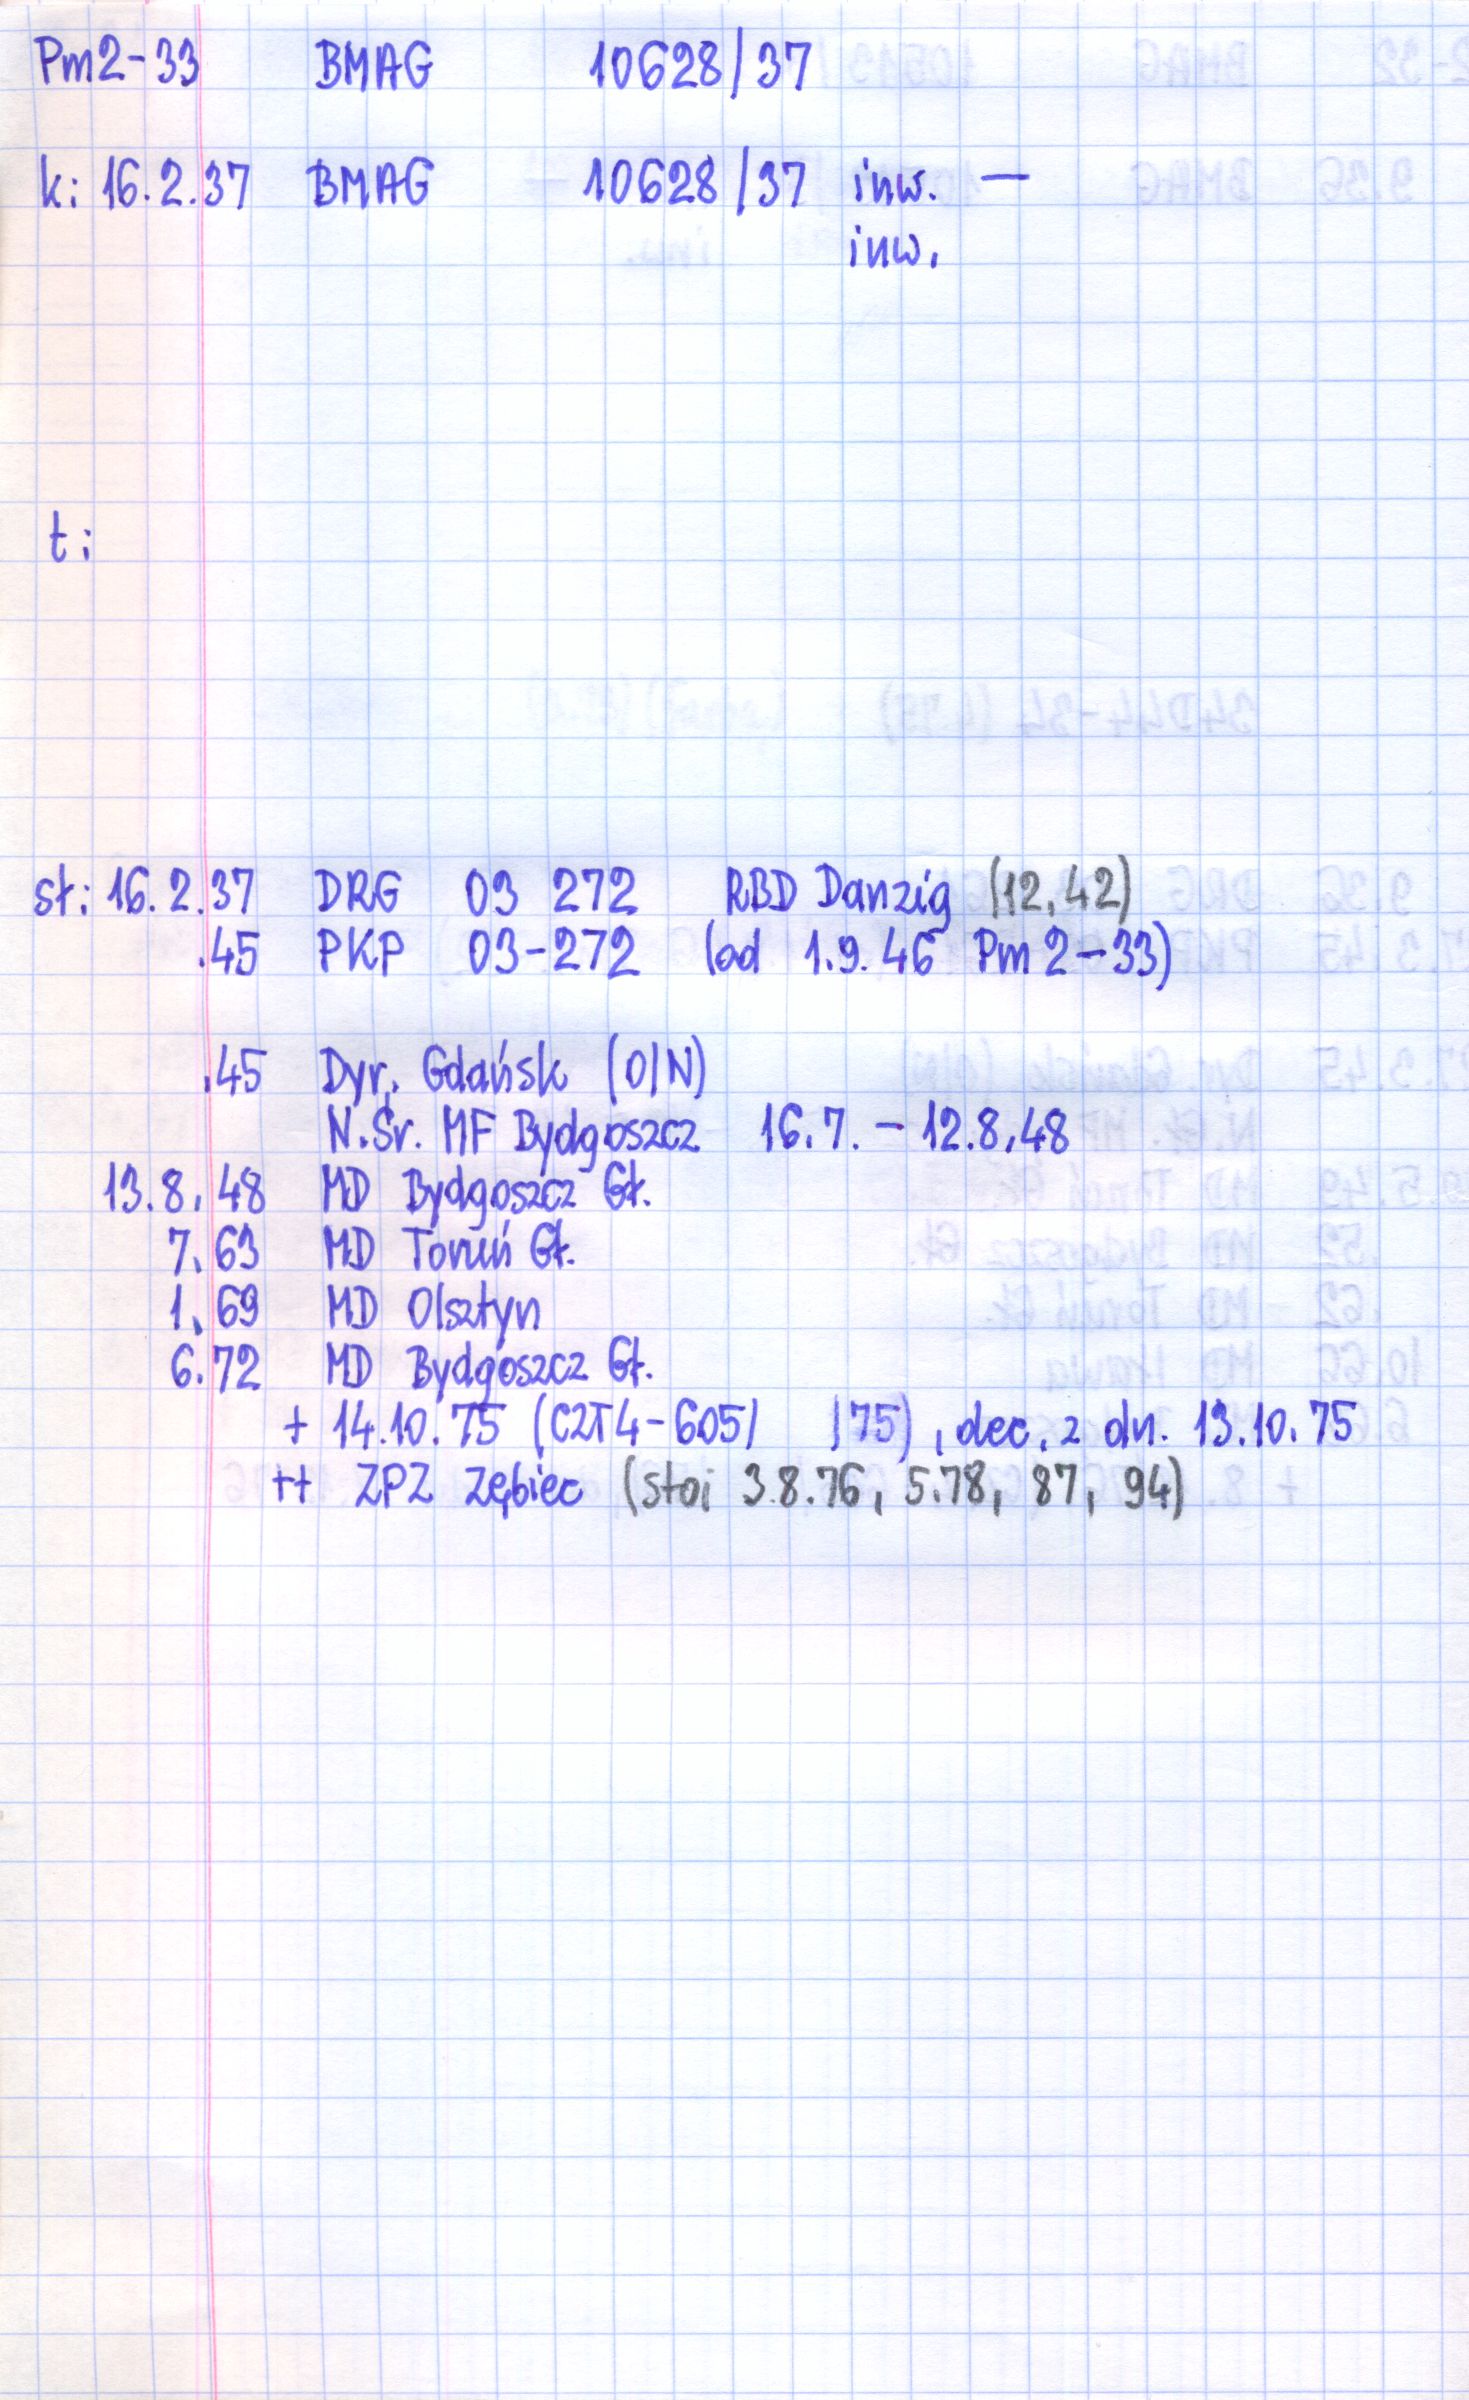 Pm2-33 BMAG 10628/37
k: 16.2.37 BMAG 10628/37 inw. —
inw.
t:
st: 16.2.37 DRG 03 272 RBD Danzig (12.42)
.45 PKP 03-272 (od 1.9.46 Pm2-33)
.45 Dyr. Gdańsk (O/N)
N.Śr. MF Bydgoszcz 16.7. - 12.8.48
13.8.48 MD Bydgoszcz Gł.
7.63 MD Toruń Gł.
1.69 MD Olsztyn
6.72 MD Bydgoszcz Gł.
+ 14.10.75 (C2T4-605/ /75), dec. z dn. 13.10.75
++ ZPZ Zębiec (stoi 3.8.76, 5.78, 87, 94)